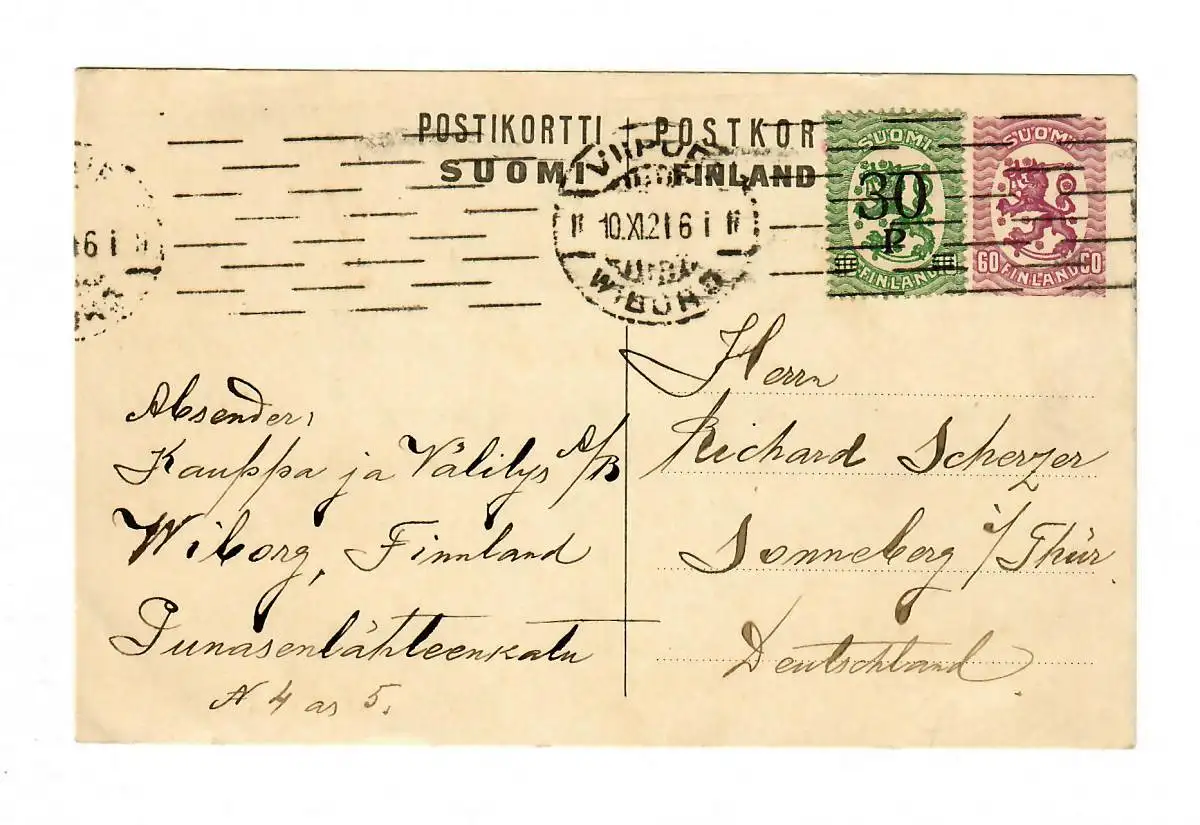 POSTIKORTTI + POSTKOR
SUOMI FINLAND
SUOMI
30
P
FINLAND
SUOMI
60 FINLAND 60
VIIPURI
10.XI.21 6 i
WIBORG
6 i
Absender:
Kauppa ja Välilys A/B
Wiborg, Finnland
Punasenlähteenkatu
N 4 as 5.
Herrn
Richard Scherzer
Sonneberg i/Thür.
Deutschland.